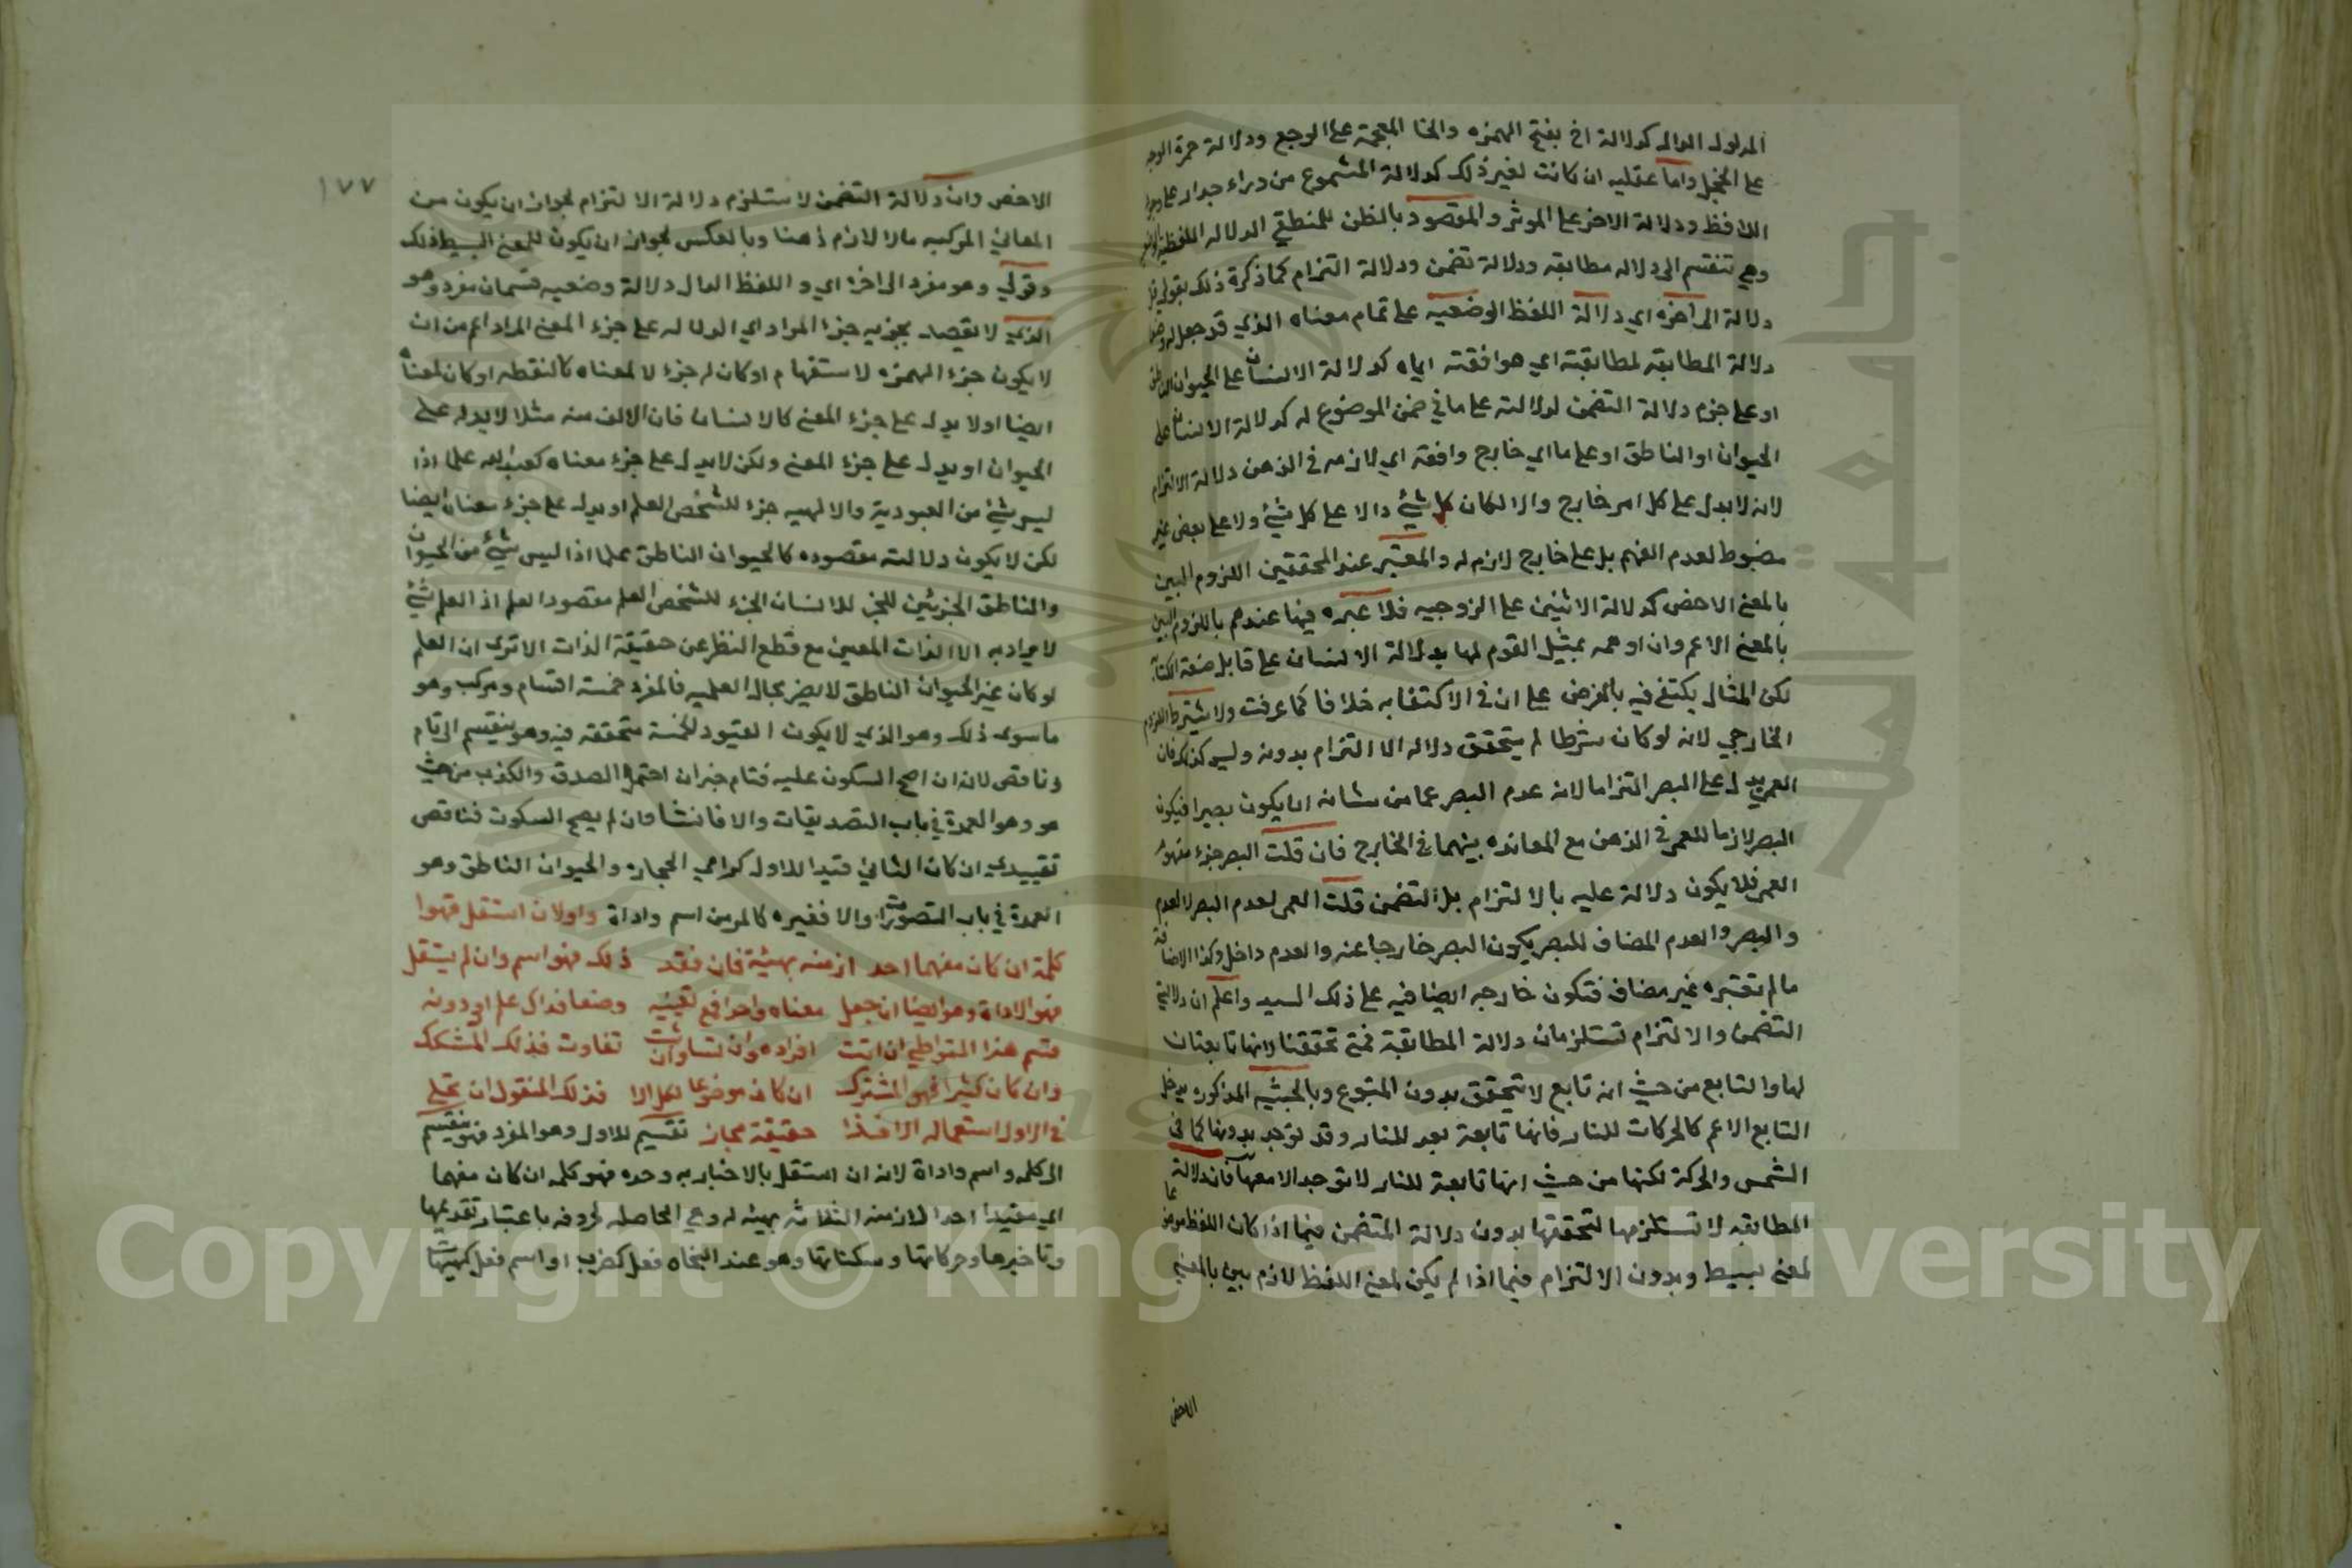 المدلول الدال كدلالة اخ بفتح الهمزه والخا المعجمة على الوجع ودلالة حمرة الوجه
على الخجل واما عقليه ان كانت لغير ذلك كدلالة المسموع من وراء جدار على وجود
اللافظ ودلالة الاثر على الموثر والمقصود بالنظر للمنطقي الدلاله اللفظية
وهي تنقسم الى دلاله مطابقه ودلالة تضمن ودلالة التزام كما ذكرة ذلك بقولي
دلالة الى اخره اي دلالة اللفظ الوضعيه على تمام معناه الذي قد جعل له
دلالة المطابقه لمطابقته اي موافقته اياه كدلالة الانسان على الحيوان الناطق
او على جزء دلالة التضمن لدلالته على ما في ضمن الموضوع له كدلالة الانسان على
الحيوان او الناطق او على ما اي خارج وافقه اي لازمه في الذهن دلالة الالتزام
لانه لا يدل على كل امر خارج والا لكان كل شيئ دالا على كل شيئ ولا على بعض غير
مضبوط لعدم الفهم بل على خارج لازم له والمعتبر عند المحققين اللزوم البين
بالمعنى الاخص كدلالة الاثنين على الزوجيه فلا عبره فيها عندهم باللزوم البين
بالمعنى الاعم وان اوهمه تمثيل القوم لها بدلالة الانسان على قابل صنعة الكتابة
لكن المثال يكتفى فيه بالفرض على ان في الاكتفا به خلافا كما عرفت ولا يشترط اللزوم
الخارجي لانه لو كان شرطا لم يتحقق دلاله الا التزام بدونه وليس كذلك فان
العمى يدل على البصر التزاما لانه عدم البصر عما من شانه ان يكون بصيرا فيكون
البصر لازما للعمى في الذهن مع المعانده بينهما في الخارج فان قلت البصر جزء مفهوم
العمى فلا يكون دلالة عليه بالالتزام بل التضمن قلت العمى لعدم البصر لا العدم
والبصر والعدم المضاف للبصر يكون البصر خارجا عنه والعدم داخل وكذا الاضافة
ما لم تعتبره غير مضاف فتكون خارجه ايضا فيه على ذلك السيد واعلم ان دلالتي
التضمن والالتزام تستلزمان دلالة المطابقة فمتى تحققتا لانها تابعتان
لها والتابع من حيث انه تابع لا يتحقق بدون المتبوع وبالحيثيه المذكوره يدخل
التابع الاعم كالحركات للنار فانها تابعة بعد للنار وقد توجد بدونها كما في
الشمس والحركة لكنها من حيث انها تابعة للنار لا توجد الا معها فان دلالة
المطابقه لا تستلزمها لتحققها بدون دلالة التضمن فيما اذا كان اللفظ
لمعنى بسيط وبدون الالتزام فيما اذا لم يكن لمعنى اللفظ لازم بين بالمعنى
الاخص
١٧٧
الاخص وان دلالة التضمن لا ستلزم دلالة الالتزام لجواز ان يكون من
المعاني المركبه مالا لازم ذهنا وبالعكس لجواز ان يكون للمعنى البسيط ذلك
وقولي وهو مفرد الى اخره اي واللفظ الدال دلالة وضعيه قسمان مفرد وهو
الذي لا يقصد بجزيه جزء المراد اي الدلاله على جزء المعنى المراد اعم من ان
لا يكون جزء الهمزه لاستفهام او كان له جزء لا لمعناه كالنقطه او كان لمعناه
ايضا او لا يدل على جزء المعنى كالانسان فان الالف منه مثلا لا يدل على
الحيوان او يدل على جزء المعنى ولكن لا يدل على جزء معناه كعبد الله علما اذا
ليس شيئ من العبودية والالهيه جزء للشخص العلم او يدل على جزء معناه ايضا
لكن لا يكون دلالته مقصوده كالحيوان الناطق علما اذا ليس شيئ من الحيوان
والناطق الجزئين للجز للانسان الجزء للشخص العلم مقصودا لعلم اذ العلم شيئ
لا يراد به الا الذات المعين مع قطع النظر عن حقيقة الذات الا ترى ان العلم
لو كان غير الحيوان الناطق لا يضر بحال العلميه فالمفرد خمسة اقسام ومركب وهو
ما سوى ذلك وهو الذي لا يكون القيود الخمسة متحققه فيه وهو ينقسم الى تام
وناقص لانه ان اصح السكون عليه فتام خبر ان احتمل الصدق والكذب من حيث
هو وهو العمدة في باب التصديقات والا فانشا وان لم يصح السكوت فناقص
تقييدي ان كان الثاني قيدا للاول كرامي الحجاره والحيوان الناطق وهو
العمدة في باب التصورات والا فغيره كالمر من اسم واداة واولان استقل فهوا
كلمة ان كان مفهما احد ازمنه بهيئة فان فقد ذلك فهو اسم وان لم يستقل
فهو الاداة وهو ايضا ان جعل معناه واحدا فمع تعيينه وضعا فذاك علم او دونه
قسم هذا المتواطي ان اتت افراده وان تساوت تفاوت فذلك المشكك
وان كان كثيرا فهو المشترك ان كان موضوعا لكل الا فذلك المنقول ان تخلي
في الاول استعماله الا فذا حقيقة مجاز تقسيم للاول وهو المفرد فهو ينقسم
الى كلمه واسم واداة لانه ان استقل بالاخبار به وحده فهو كلمه ان كان مفهما
اي مقيدا احد الازمنه الثلاثه بهيئه له وهي الحاصله لحروفه باعتبار تقديمها
وتاخيرها وحركاتها وسكناتها وهو عند النحاه فعل كضرب او اسم فعل كهيهات
Copyright © King Saud University